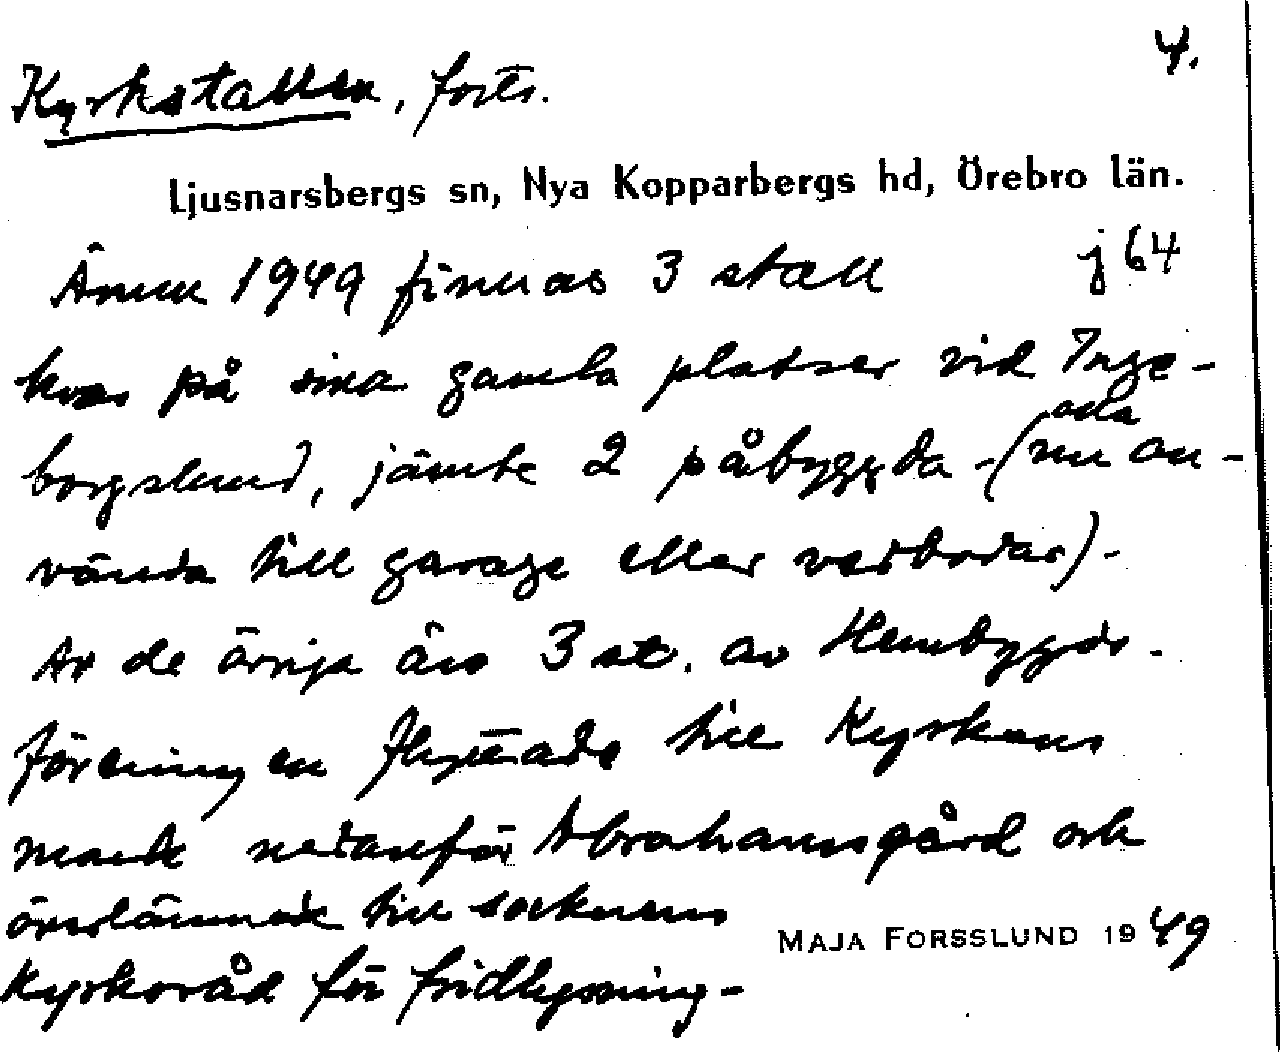 4.
Kyrkstallen, forts.
Ljusnarsbergs sn, Nya Kopparbergs hd, Örebro län.
Ännu 1949 finnas 3 stall j 64
kvar på sina gamla platser vid Inge-
borgslund, jämte 2 påbyggda - (nu an-
vända till garage eller vedbodar) -
Av de övriga äro 3 st. av Hembygds-
föreningen flyttade till Kyrkans
mark nedanför Abrahamsgård och
överlämnade till socknens
MAJA FORSSLUND 1949
Kyrkoråd för fridlysning -